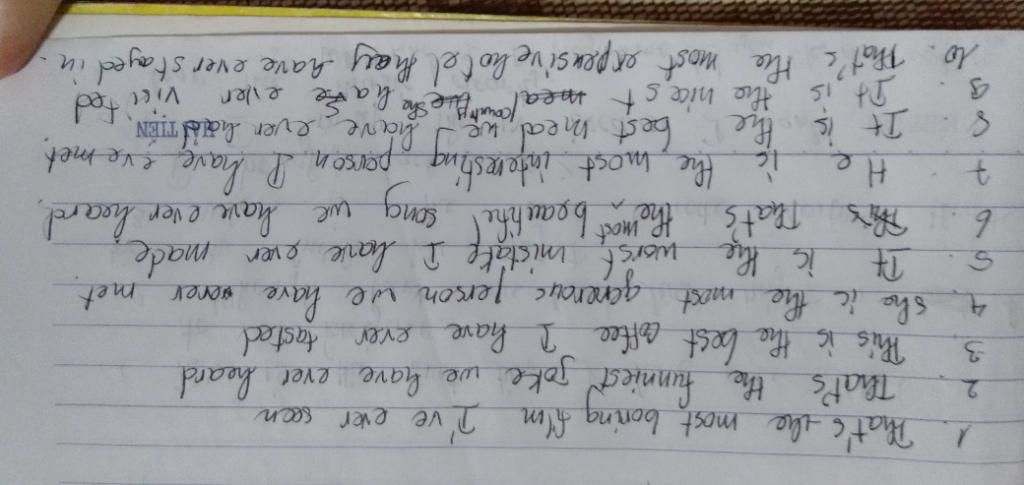 1. That's the most boring film I've ever seen
2. That's the funniest joke we have ever heard
3. This is the best coffee I have ever tasted
4. She is the most generous person we have ever met
5. It is the worst mistake I have ever made
6. That's the most beautiful song we have ever heard
7. He is the most interesting person I have eve met
8. It is the best meal we have ever had
9. It is the nicest country she have ever visited
10. That's the most expensive hotel they have ever stayed in.